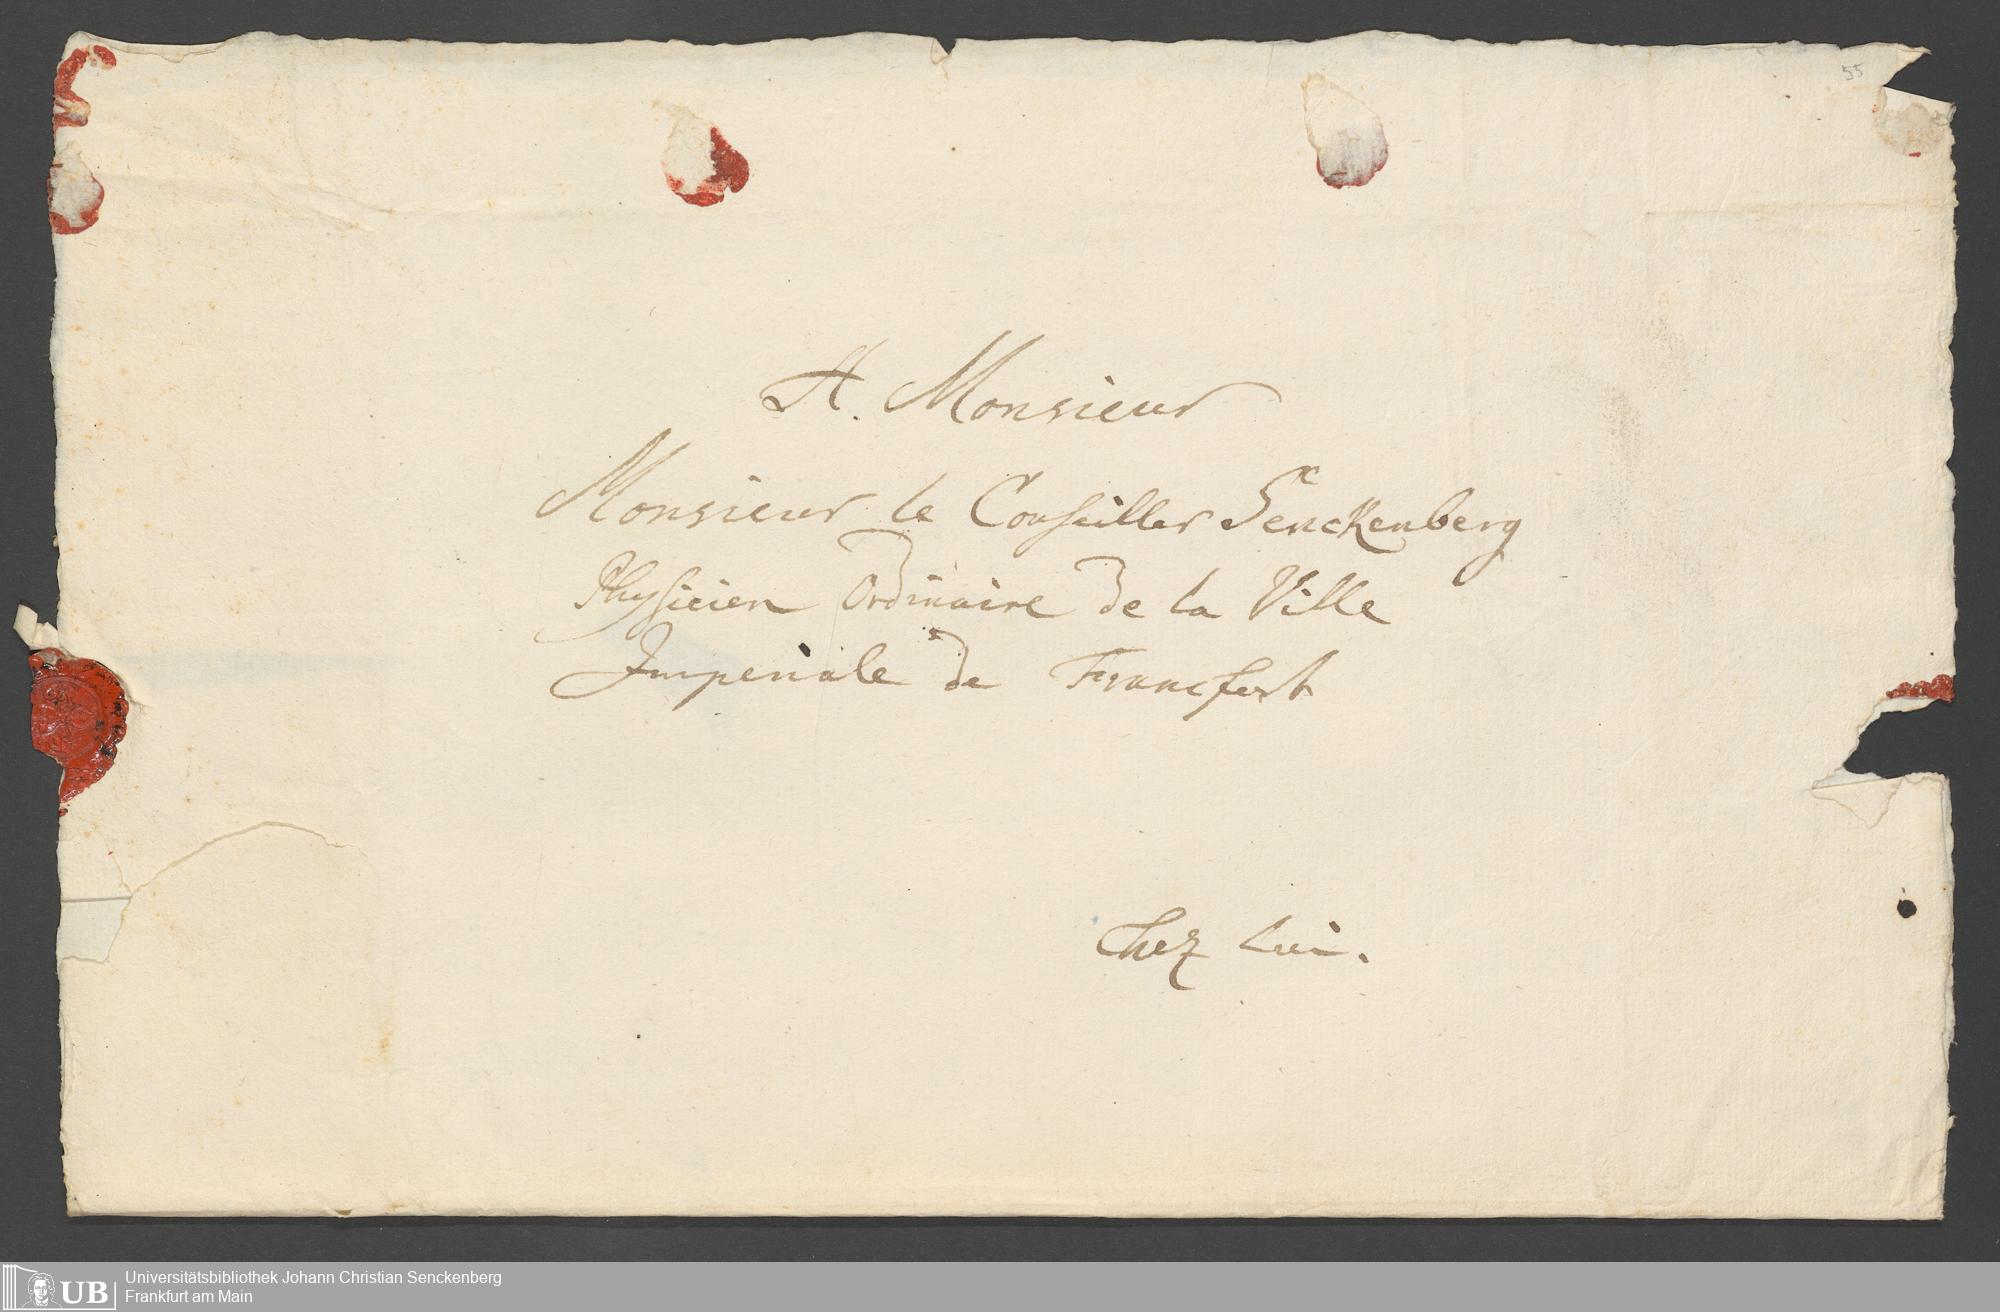 55
A. Monsieur
Monsieur le Conseiller Senckenberg
Physicien Ordinaire de la Ville
Imperiale de Francfort
Chez Lui.
UB
Universitätsbibliothek Johann Christian Senckenberg
Frankfurt am Main